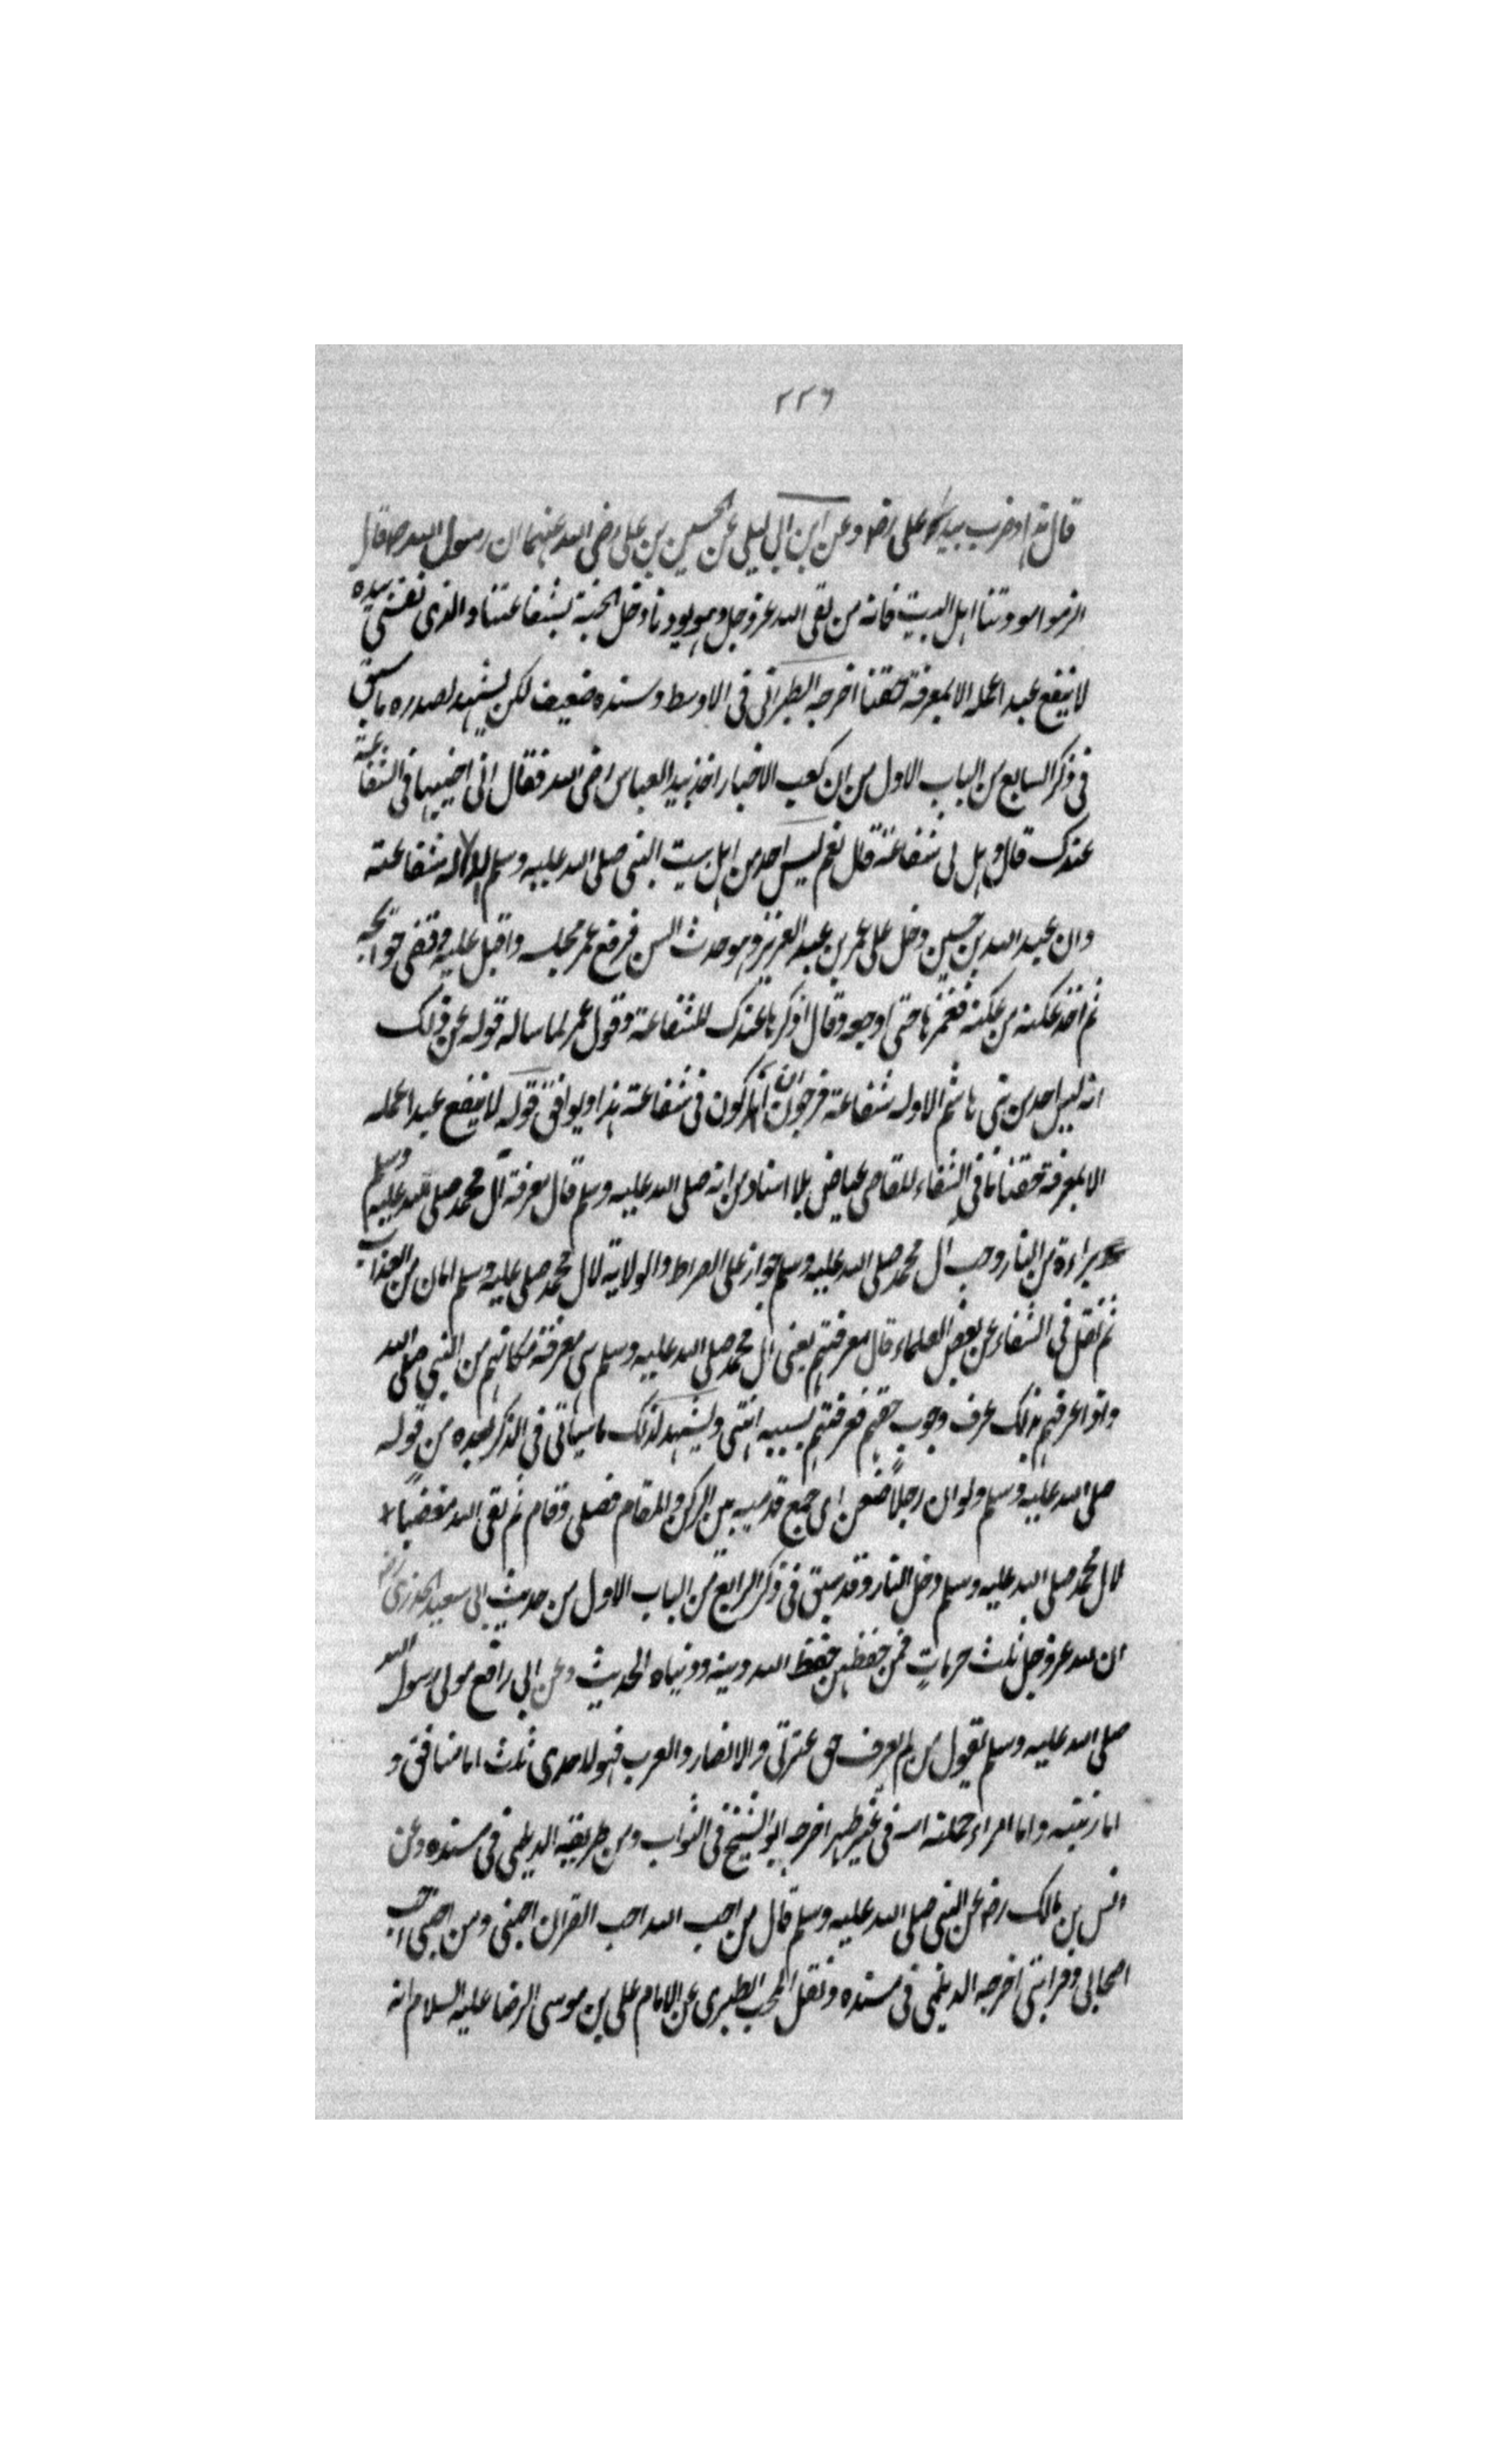 ٢٢٦
قال هذا وضرب بيده على علي رضـ وعن ابن ابي ليلى عن الحسين بن علي رضى الله عنهما ان رسول الله صـ قال
الزموا مودتنا اهل البيت فانه من لقى الله عز وجل وهو يودنا دخل الجنة بشفاعتنا والذى نفسي بيده
لا ينفع عبدا عمله الا بمعرفة حقنا اخرجه الطبراني فى الاوسط وسنده ضعيف لكن يشهد لصدره ما سبق
فى ذكر السابع من الباب الاول من ان كعب الاخبار اخذ بيد العباس رضى الله فقال انى اختبيها فى الشفاعة
عندك قال وهل لى شفاعة قال نعم ليس احد من اهل بيت النبى صلى الله عليه وسلم الا له شفاعة
وان عبد الله بن حسين دخل على عمر بن عبد العزيز وهو حدث السن فرفع عمر مجلسه واقبل عليه وقضى حوائجه
ثم اخذ عكنة من عكنه فغمزها حتى اوجعه وقال اذكرها عندك للشفاعة وقول عمر لما ساله قوله عن ذلك
انه ليس احد من بنى هاشم الا وله شفاعة فرجوت ان اكون فى شفاعة هذا ويوافق قوله لا ينفع عبدا عمله
الا بمعرفة حقنا ما فى الشفاء للقاضى عياض بلا اسناد من انه صلى الله عليه وسلم قال معرفة آل محمد صلى الله عليه وسلم
براءة من النار وحب آل محمد صلى الله عليه وسلم جواز على الصراط والولاية لال محمد صلى عليه وسلم امان من العذاب
ثم نقل فى الشفاء عن بعض العلماء قال معرفتهم يعنى آل محمد صلى الله عليه وسلم هى معرفة مكانهم من النبى صلى الله
واذا عرفهم بذلك عرف وجوب حقهم فعرفتهم بسببه انتهى ويشهد لذلك ما سيأتى فى الذكر بعده من قوله
صلى الله عليه وسلم ولو ان رجلاً صفن اى جمع قدميه بين الركن والمقام فصلى وقام ثم لقى الله مغضباً
لال محمد صلى الله عليه وسلم دخل النار وقد سبق فى ذكر الرابع من الباب الاول من حديث ابى سعيد الخدرى رضـ
ان لله عز وجل ثلث حرمات فمن حفظهن حفظ الله دينه ودنياه الحديث وعن ابى رافع مولى رسول الله
صلى الله عليه وسلم يقول من لم يعرف حق عترتى والانصار والعرب فهو لاحدى ثلث اما منافق و
اما زنيته واما امراء حملته امه فى غير طهر اخرجه ابو الشيخ فى الثواب ومن طريقه الديلمى فى مسنده وعن
انس بن مالك رضـ عن النبى صلى الله عليه وسلم قال من احب الله احب القران احبنى ومن احبنى احب
اصحابى وقرابتى اخرجه الديلمى فى مسنده ونقل المحب الطبرى عن الامام على بن موسى الرضا عليه السلام انه